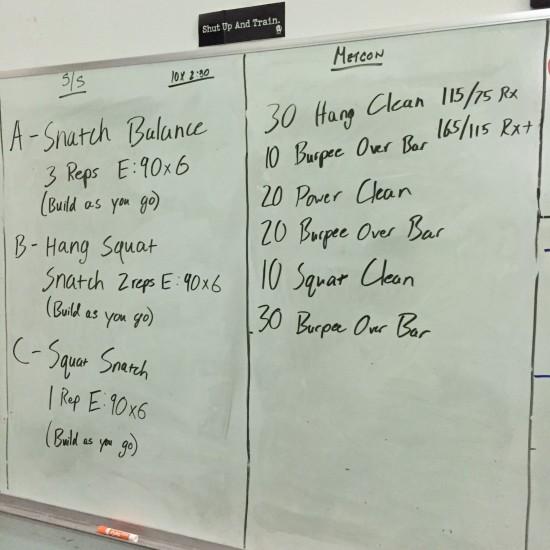 Shut Up And Train.
S/S
10x 2:30
A - Snatch Balance
3 Reps E:90x6
(Build as you go)
B - Hang Squat
Snatch 2 reps E:90x6
(Build as you go)
C - Squat Snatch
1 Rep E:90x6
(Build as you go)
Metcon
30 Hang Clean 115/75 Rx
165/115 Rx+
10 Burpee Over Bar
20 Power Clean
20 Burpee Over Bar
10 Squat Clean
30 Burpee Over Bar